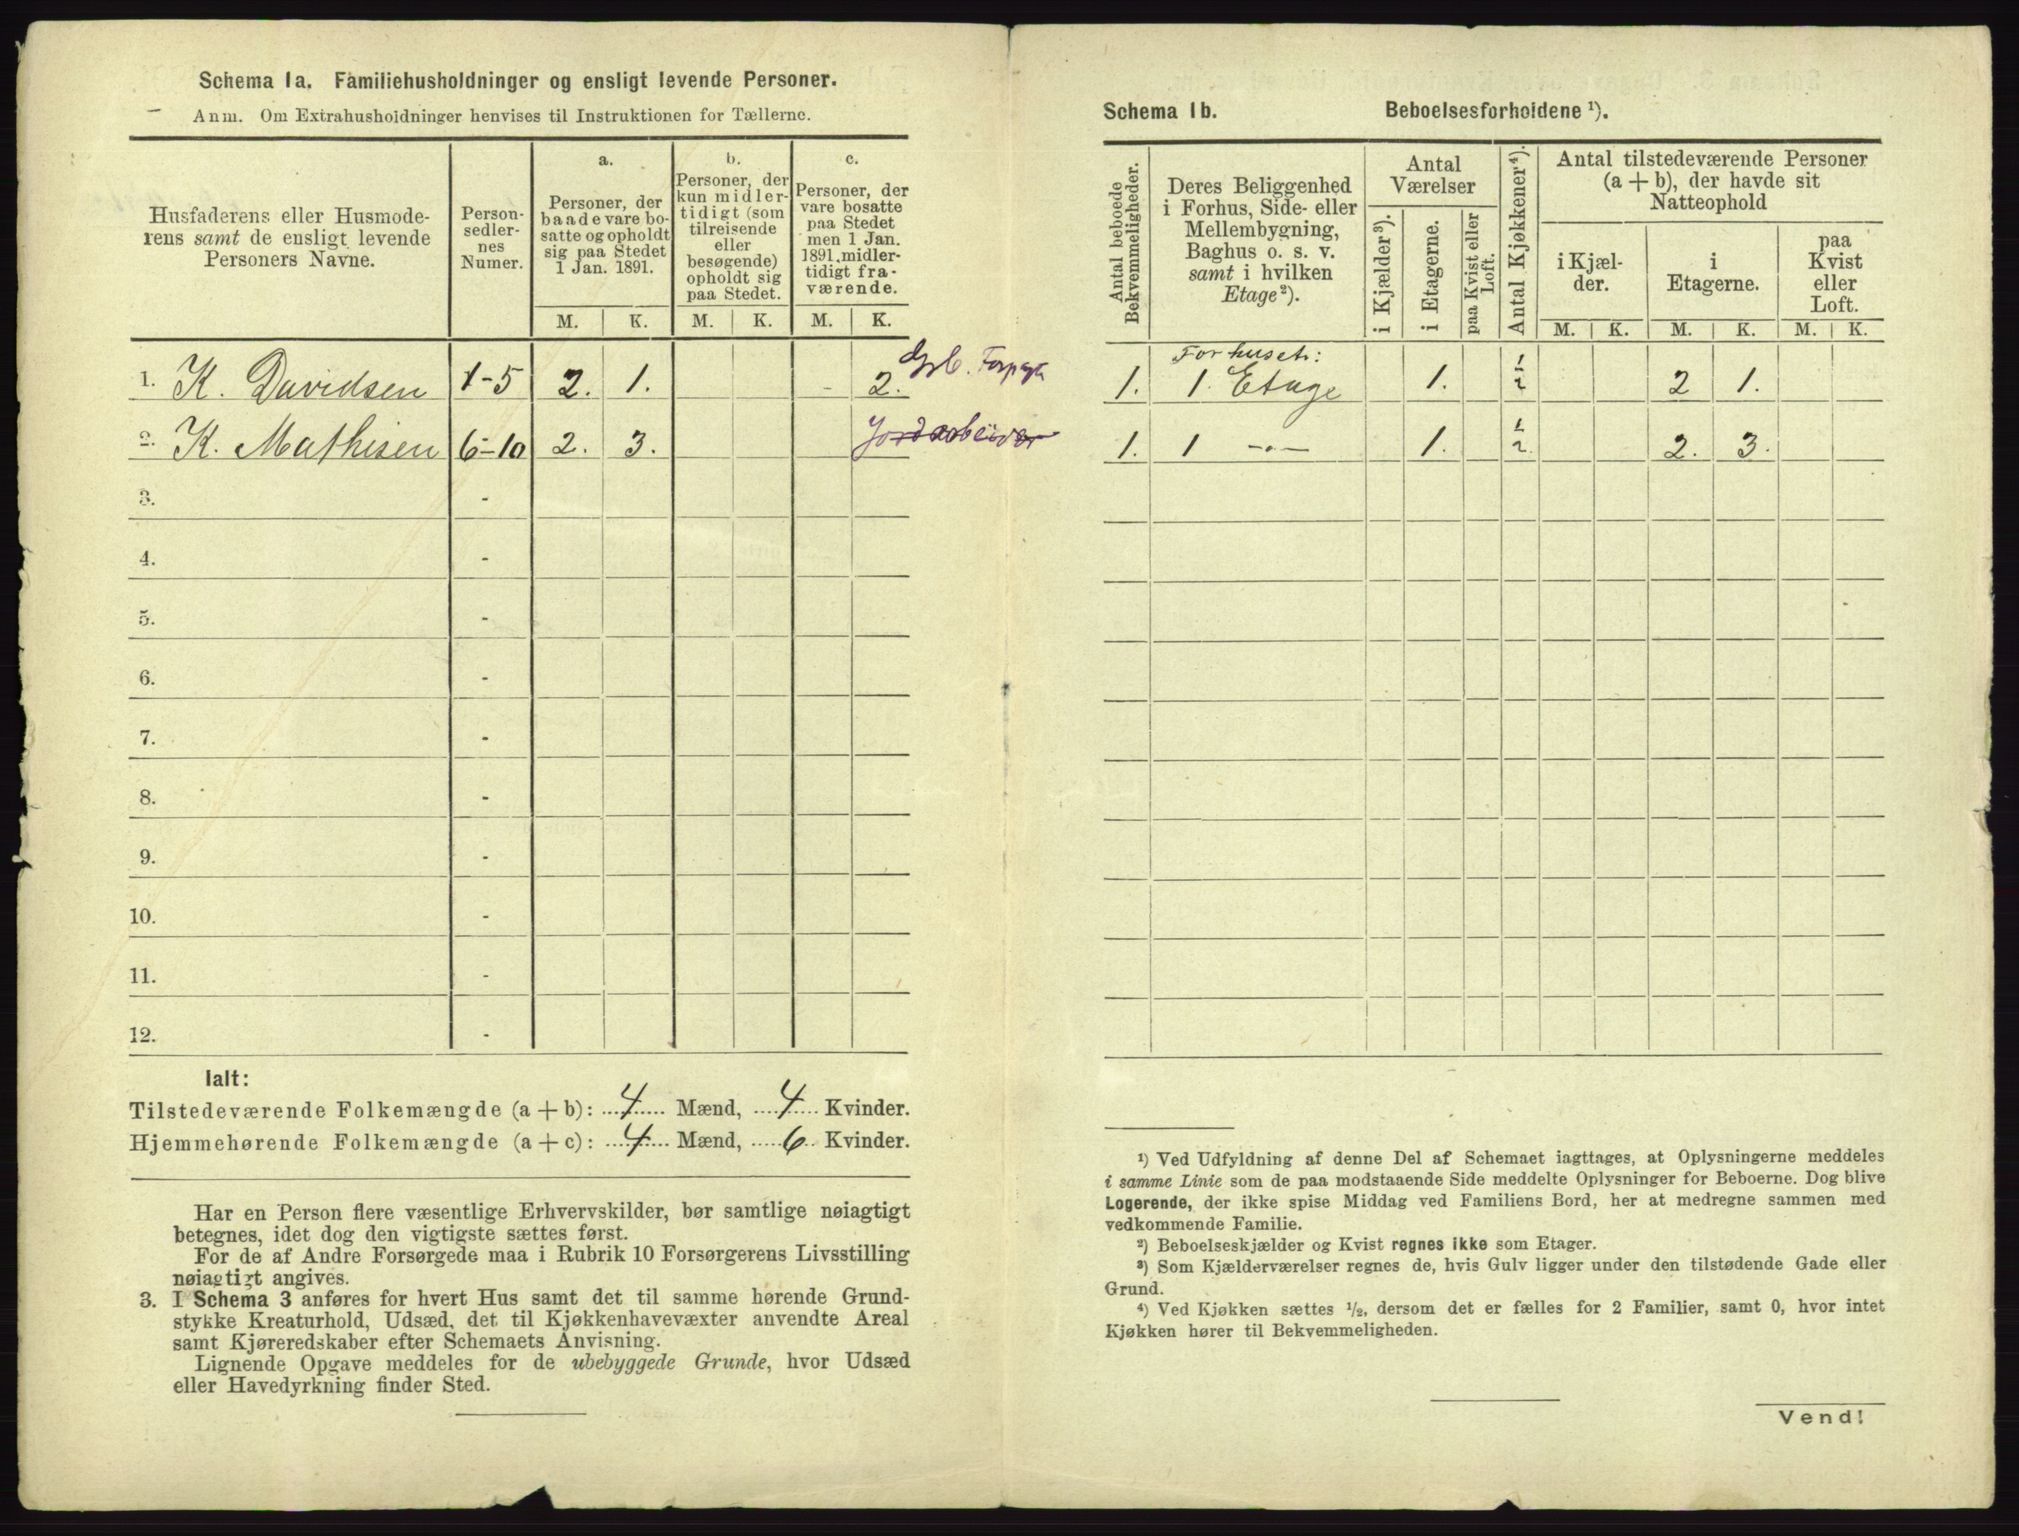 Schema 1a. Familiehusholdninger og ensligt levende Personer.
Anm. Om Extrahusholdninger henvises til Instruktionen for Tællerne.
Husfaderens eller Husmode-
rens samt de ensligt levende
Personers Navne.
Person-
sedler-
nes
Numer.
a.
Personer, der
baade vare bo-
satte og opholdt
sig paa Stedet
1 Jan. 1891.
b.
Personer, der
kun midler-
tidigt (som
tilreisende
eller
besøgende)
opholdt sig
paa Stedet.
c.
Personer, der
vare bosatte
paa Stedet
men 1 Jan.
1891 midler-
tidigt fra-
værende.
M. K. M. K. M. K.
1. K. Davidsen 1-5 2. 1. - 2.
2. K. Mathisen 6-10 2. 3. Jordarbeider
3. -
4. -
5. -
6. -
7. -
8. -
9. -
10. -
11. -
12. -
Ialt:
Tilstedeværende Folkemængde (a + b): 4 Mænd, 4 Kvinder.
Hjemmehørende Folkemængde (a + c): 4 Mænd, 6 Kvinder.
Har en Person flere væsentlige Erhvervskilder, bør samtlige nøiagtigt
betegnes, idet dog den vigtigste sættes først.
For de af Andre Forsørgede maa i Rubrik 10 Forsørgerens Livsstilling
nøiagtigt angives.
3. I Schema 3 anføres for hvert Hus samt det til samme hørende Grund-
stykke Kreaturhold, Udsæd, det til Kjøkkenhavevæxter anvendte Areal
samt Kjøreredskaber efter Schemaets Anvisning.
Lignende Opgave meddeles for de ubebyggede Grunde, hvor Udsæd
eller Havedyrkning finder Sted.
Schema 1b. Beboelsesforholdene ¹).
Antal beboede
Bekvemmeligheder.
Deres Beliggenhed
i Forhus, Side- eller
Mellembygning,
Baghus o. s. v.
samt i hvilken
Etage²).
Antal
Værelser
i Kjælder³).
i Etagerne.
paa Kvist eller
Loft.
Antal Kjøkkener⁴).
Antal tilstedeværende Personer
(a + b), der havde sit
Natteophold
i Kjæl-
der.
i
Etagerne.
paa
Kvist
eller
Loft.
M. K. M. K. M. K.
Forhuset:
1. 1. Etage 1. 1/2 2 1.
1. 1 -"- 1. 1/2. 2. 3.
¹) Ved Udfyldning af denne Del af Schemaet iagttages, at Oplysningerne meddeles
i samme Linie som de paa modstaaende Side meddelte Oplysninger for Beboerne. Dog blive
Logerende, der ikke spise Middag ved Familiens Bord, her at medregne sammen med
vedkommende Familie.
²) Beboelseskjælder og Kvist regnes ikke som Etager.
³) Som Kjælderværelser regnes de, hvis Gulv ligger under den tilstødende Gade eller
Grund.
⁴) Ved Kjøkken sættes ½, dersom det er fælles for 2 Familier, samt 0, hvor intet
Kjøkken hører til Bekvemmeligheden.
Vend!